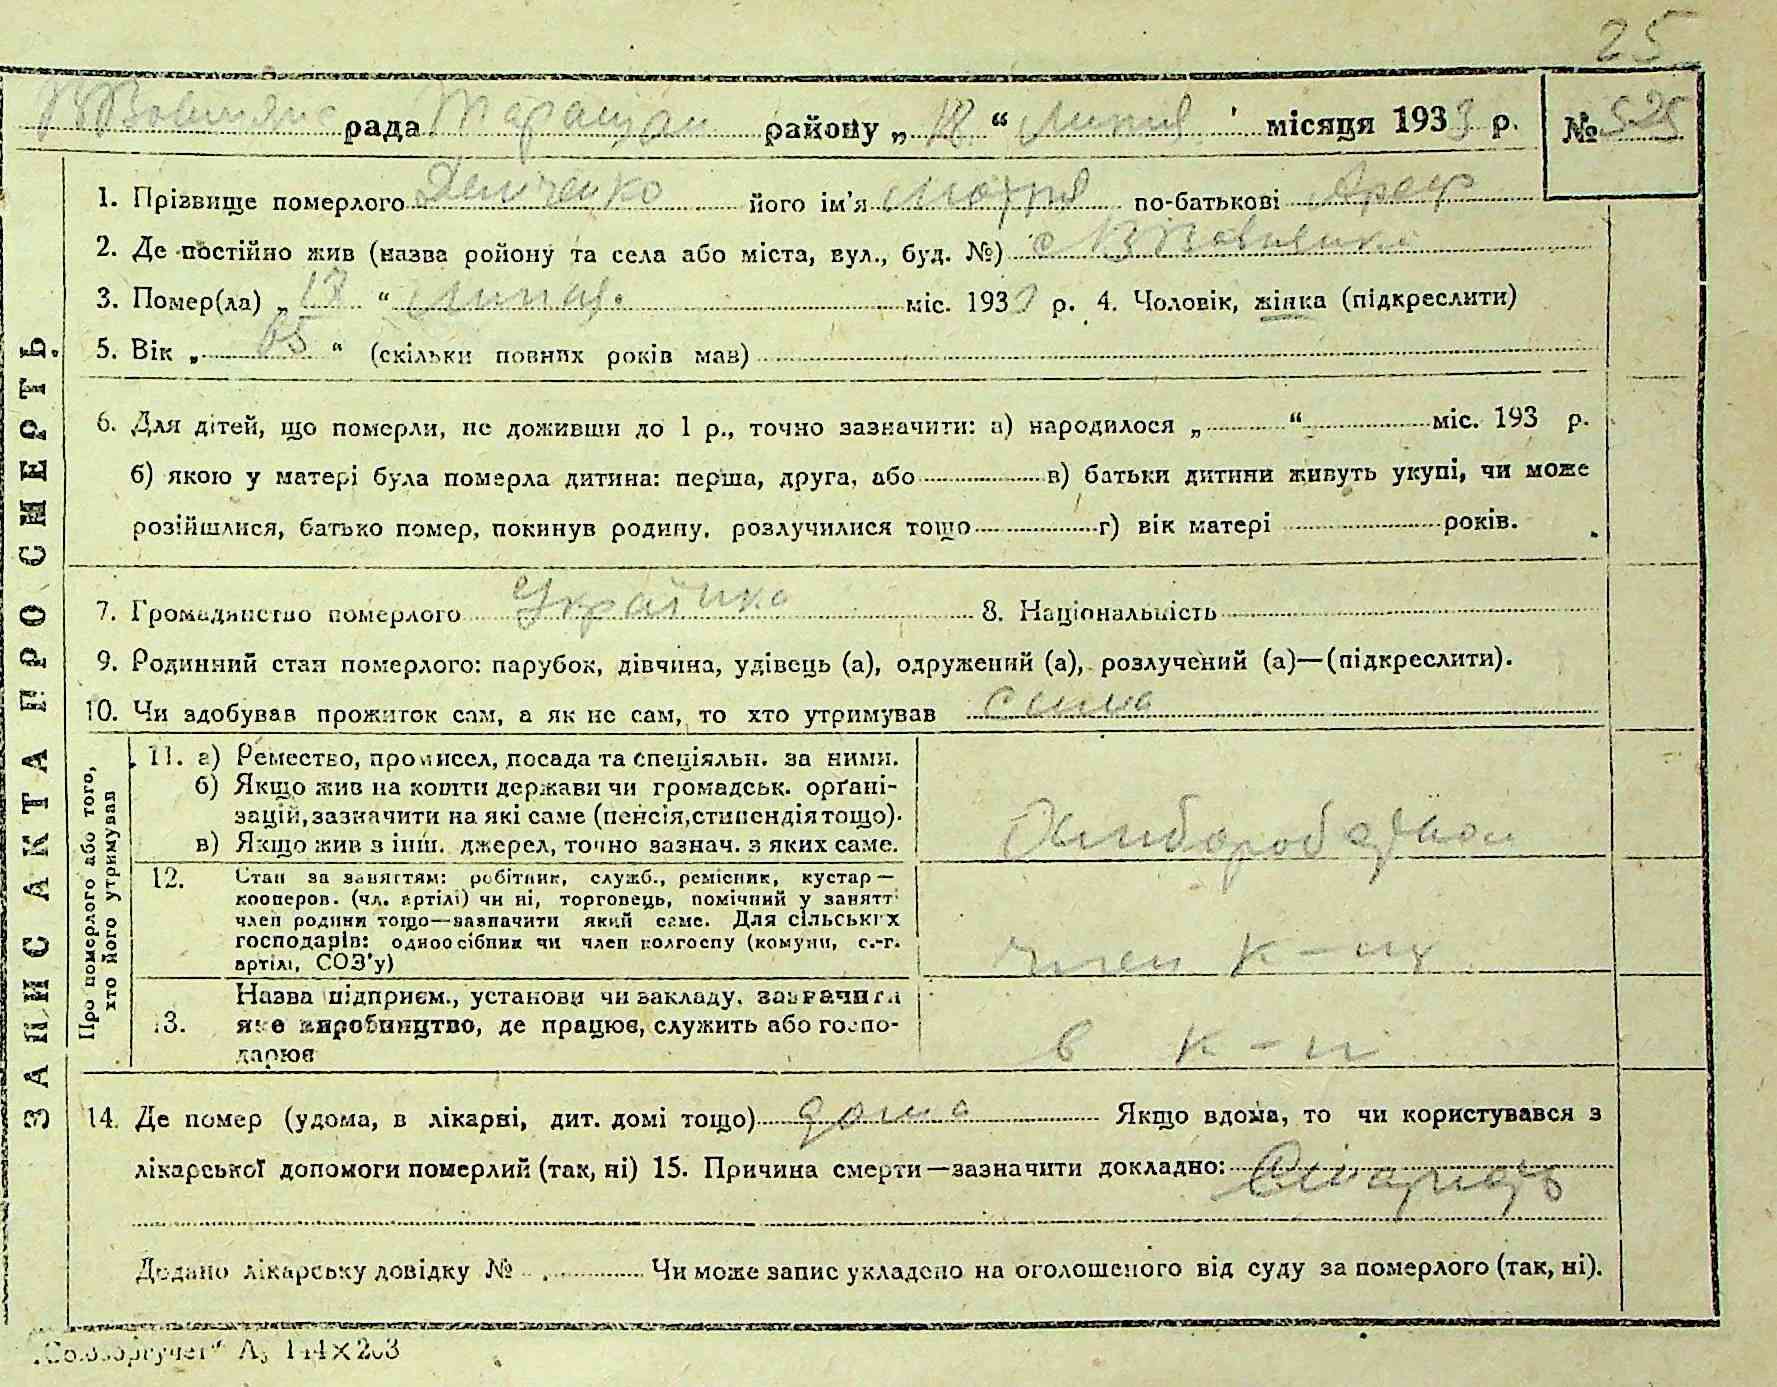 25
рада Таращан району „ 18 “ Липня місяця 1933 р. № 525
ЗАПИС АКТА ПРО СМЕРТЬ
1. Прізвище померлого Демченко його ім'я Мотря по-батькові Ареф
2. Де постійно жив (назва ройону та села або міста, вул., буд. №) с
3. Помер(ла) „ 18 “ Липня міс. 1933 р. 4. Чоловік, жінка (підкреслити)
5. Вік „ 65 “ (скільки повних років мав)
6. Для дітей, що померли, не доживши до 1 р., точно зазначити: а) народилося „ “ міс. 193 р.
б) якою у матері була померла дитина: перша, друга, або в) батьки дитини живуть укупі, чи може
розійшлися, батько помер, покинув родину, розлучилися тощо г) вік матері років.
7. Громадянство померлого Українка 8. Національність
9. Родинний стан померлого: парубок, дівчина, удівець (а), одружений (а), розлучений (а)—(підкреслити).
10. Чи здобував прожиток сам, а як не сам, то хто утримував сама
Про померлого або того,
хто його утримував
11. а) Ремество, промисел, посада та спеціяльн. за ними.
б) Якщо жив на кошти держави чи громадськ. орґані-
зацій, зазначити на які саме (пенсія, стипендія тощо).
в) Якщо жив з інш. джерел, точно зазнач. з яких саме.
12. Стан за заняттям: робітник, служб., ремісник, кустар—
кооперов. (чл. артілі) чи ні, торговець, помічний у занятті
член родини тощо—зазначити який саме. Для сільських
господарів: одноосібник чи член колгоспу (комуни, с.-г.
артілі, СОЗ'у)
член к-пу
13. Назва підприєм., установи чи закладу, зазначити
яке виробництво, де працює, служить або госпо-
дарює
в к-п
14. Де помер (удома, в лікарні, дит. домі тощо) дома Якщо вдома, то чи користувався з
лікарської допомоги померлий (так, ні) 15. Причина смерти—зазначити докладно:
Додано лікарську довідку № Чи може запис укладено на оголошеного від суду за померлого (так, ні).
„Союзоргучет“ А₅ 144×203